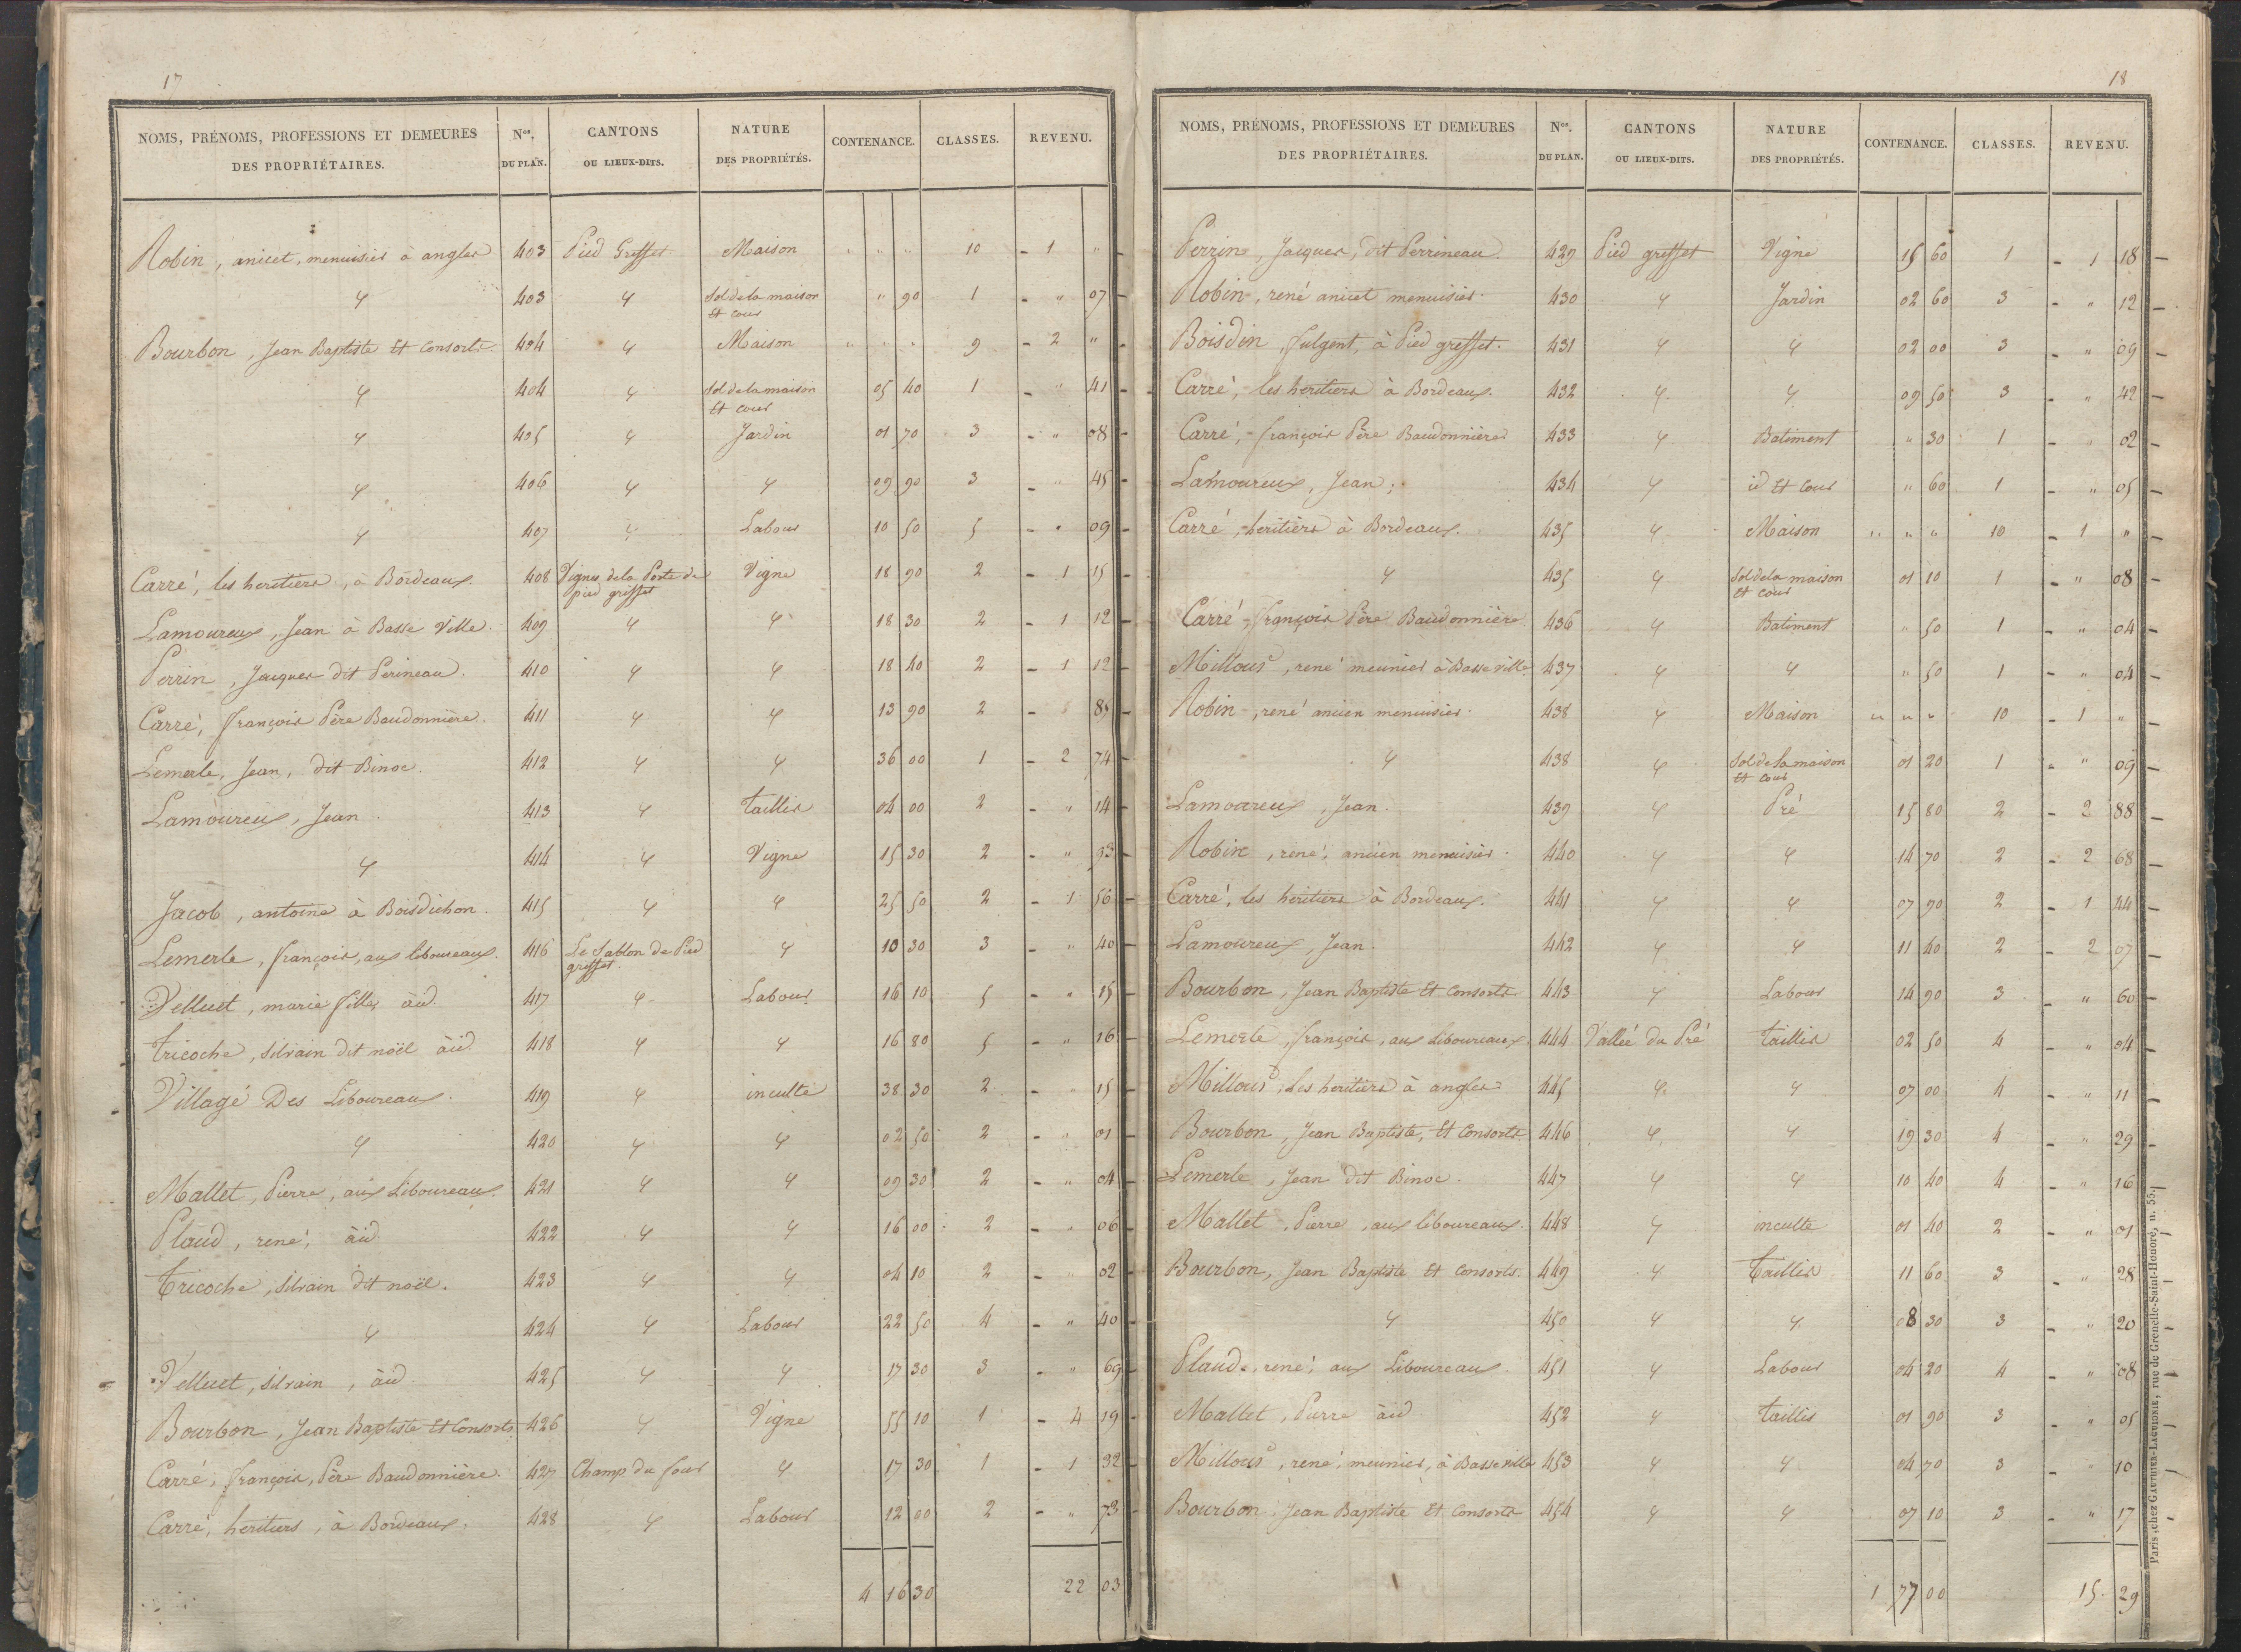 17
NOMS, PRÉNOMS, PROFESSIONS ET DEMEURES DES PROPRIÉTAIRES. Nos. DU PLAN. CANTONS OU LIEUX-DITS. NATURE DES PROPRIÉTÉS. CONTENANCE. CLASSES. REVENU.
Robin, anicet, menuisier à angles 403 Pied Griffet Maison " " " 10 - 1 "
" 403 " Sol de la maison et cour " 90 1 - " 07
Bourbon, Jean Baptiste et Consorts 404 " Maison " " " 9 - 2 "
" 404 " Sol de la maison et cour 05 40 1 - " 41
" 405 " Jardin 01 70 3 - " 08
" 406 " " 09 90 3 - " 45
" 407 " Labour 10 50 5 - " 09
Carré, les heritiers, à Bordeaux. 408 Vignes de la Porte de pied griffet Vigne 18 90 2 - 1 15
Lamoureux, Jean à Basse Ville. 409 " " 18 30 2 - 1 12
Perrin, Jacques dit Perineau. 410 " " 18 40 2 - 1 12
Carré, françois Père Baudonnière. 411 " " 13 90 2 - " 85
Lemerle, Jean, dit Binoc. 412 " " 36 00 1 - 2 74
Lamoureux, Jean. 413 " Taillis 04 00 2 - " 14
" 414 " Vigne 15 30 2 - " 93
Jacob, antoine à Boisdichon. 415 " " 25 50 2 - 1 56
Lemerle, françois, aux liboureaux. 416 Le Sablon de Pied griffet. " 10 30 3 - " 40
Velluet, marie fille, àid. 417 " Labour 16 10 5 - " 15
Tricoche, Silvain dit noël àid 418 " " 16 80 5 - " 16
Village Des Liboureaux. 419 " inculte 38 30 2 - " 15
" 420 " " 02 50 2 - " 01
Mallet, Pierre, aux Liboureaux. 421 " " 09 30 2 - " 04
Plaud, rené, àid 422 " " 16 00 2 - " 06
Tricoche, Silvain dit noël. 423 " " 04 10 2 - " 02
" 424 " Labour 22 50 4 - " 40
Velluet, Silvain, àid 425 " " 17 30 3 - " 69
Bourbon, Jean Baptiste et Consorts 426 " Vigne 55 10 1 - 4 19
Carré, françois, Père Baudonnière. 427 Champ du four " 17 30 1 - 1 32
Carré, heritiers, à Bordeaux. 428 " Labour 12 00 2 - " 73
4 16 30 22 03
18
NOMS, PRÉNOMS, PROFESSIONS ET DEMEURES DES PROPRIÉTAIRES. Nos. DU PLAN. CANTONS OU LIEUX-DITS. NATURE DES PROPRIÉTÉS. CONTENANCE. CLASSES. REVENU.
Perrin, Jacques, dit Perrineau. 429 Pied griffet Vigne 15 60 1 - 1 18
Robin, rené anicet menuisier. 430 " Jardin 02 60 3 - " 12
Boisdin, fulgent, à Pied griffet. 431 " " 02 00 3 - " 09
Carré, les heritiers à Bordeaux. 432 " " 09 50 3 - " 42
Carré, françois Père Baudonnière 433 " Batiment " 30 1 - " 02
Lamoureux, Jean; 434 " id et Cour " 60 1 - " 05
Carré, heritiers à Bordeaux. 435 " Maison " " " 10 - 1 "
" 435 " Sol de la maison et cour 01 10 1 - " 08
Carré, françois Père Baudonnière 436 " Batiment " 50 1 - " 04
Millour, rené meunier à Basse ville. 437 " " " 50 1 - " 04
Robin, rené ancien menuisier. 438 " Maison " " " 10 - 1 "
" 438 " Sol de la maison et cour 01 20 1 - " 09
Lamoureux, Jean. 439 " Pré 15 80 2 - 2 88
Robin, rené, ancien menuisier. 440 " " 14 70 2 - 2 68
Carré, les heritiers à Bordeaux. 441 " " 07 90 2 - 1 44
Lamoureux, Jean. 442 " " 11 40 2 - 2 07
Bourbon, Jean Baptiste et Consorts 443 " Labour 14 90 3 - " 60
Lemerle, françois, aux liboureaux, 444 Vallée du Pré Taillis 02 50 4 - " 04
Millour, Les heritiers à angles 445 " " 07 00 4 - " 11
Bourbon, Jean Baptiste, et Consorts 446 " " 19 30 4 - " 29
Lemerle, Jean dit Binoc. 447 " " 10 40 4 - " 16
Mallet, Pierre, aux liboureaux. 448 " inculte 01 40 2 - " 01
Bourbon, Jean Baptiste et Consorts. 449 " Taillis 11 60 3 - " 28
" 450 " " 08 30 3 - " 20
Plaud, rené, aux Liboureaux. 451 " Labour 04 20 4 - " 08
Mallet, Pierre àid 452 " Taillis 01 90 3 - " 05
Millour, rené, meunier, à Basse ville 453 " " 04 70 3 - " 10
Bourbon, Jean Baptiste et Consorts 454 " " 07 10 3 - " 17
1 77 00 15 29
Paris, chez GAUTHIER-LAGUIONIE, rue de Grenelle-Saint-Honoré, n. 55.